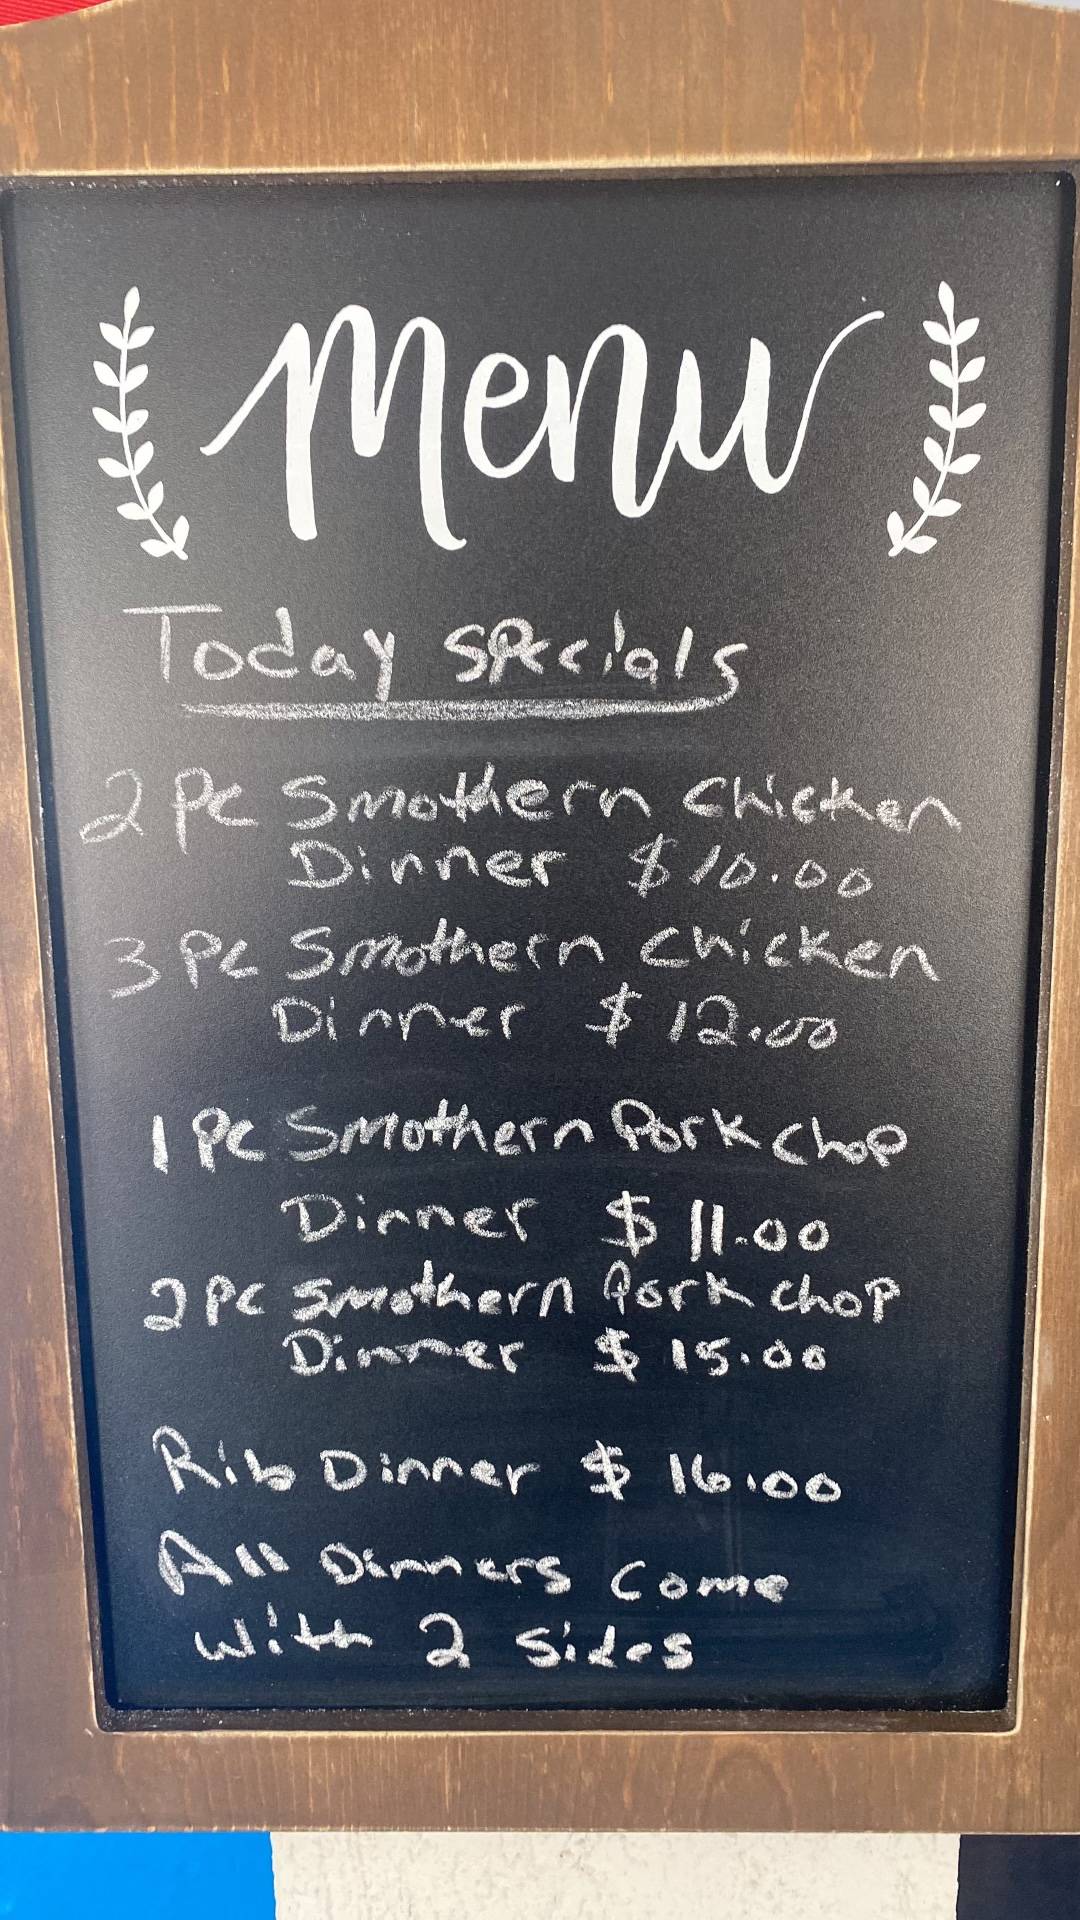 Menu
Today specials
2 Pc Smothern Chicken
Dinner $10.00
3 Pc Smothern Chicken
Dinner $12.00
1 Pc Smothern Pork Chop
Dinner $11.00
2 Pc Smothern Pork Chop
Dinner $15.00
Rib Dinner $16.00
All Dinners Come
With 2 Sides